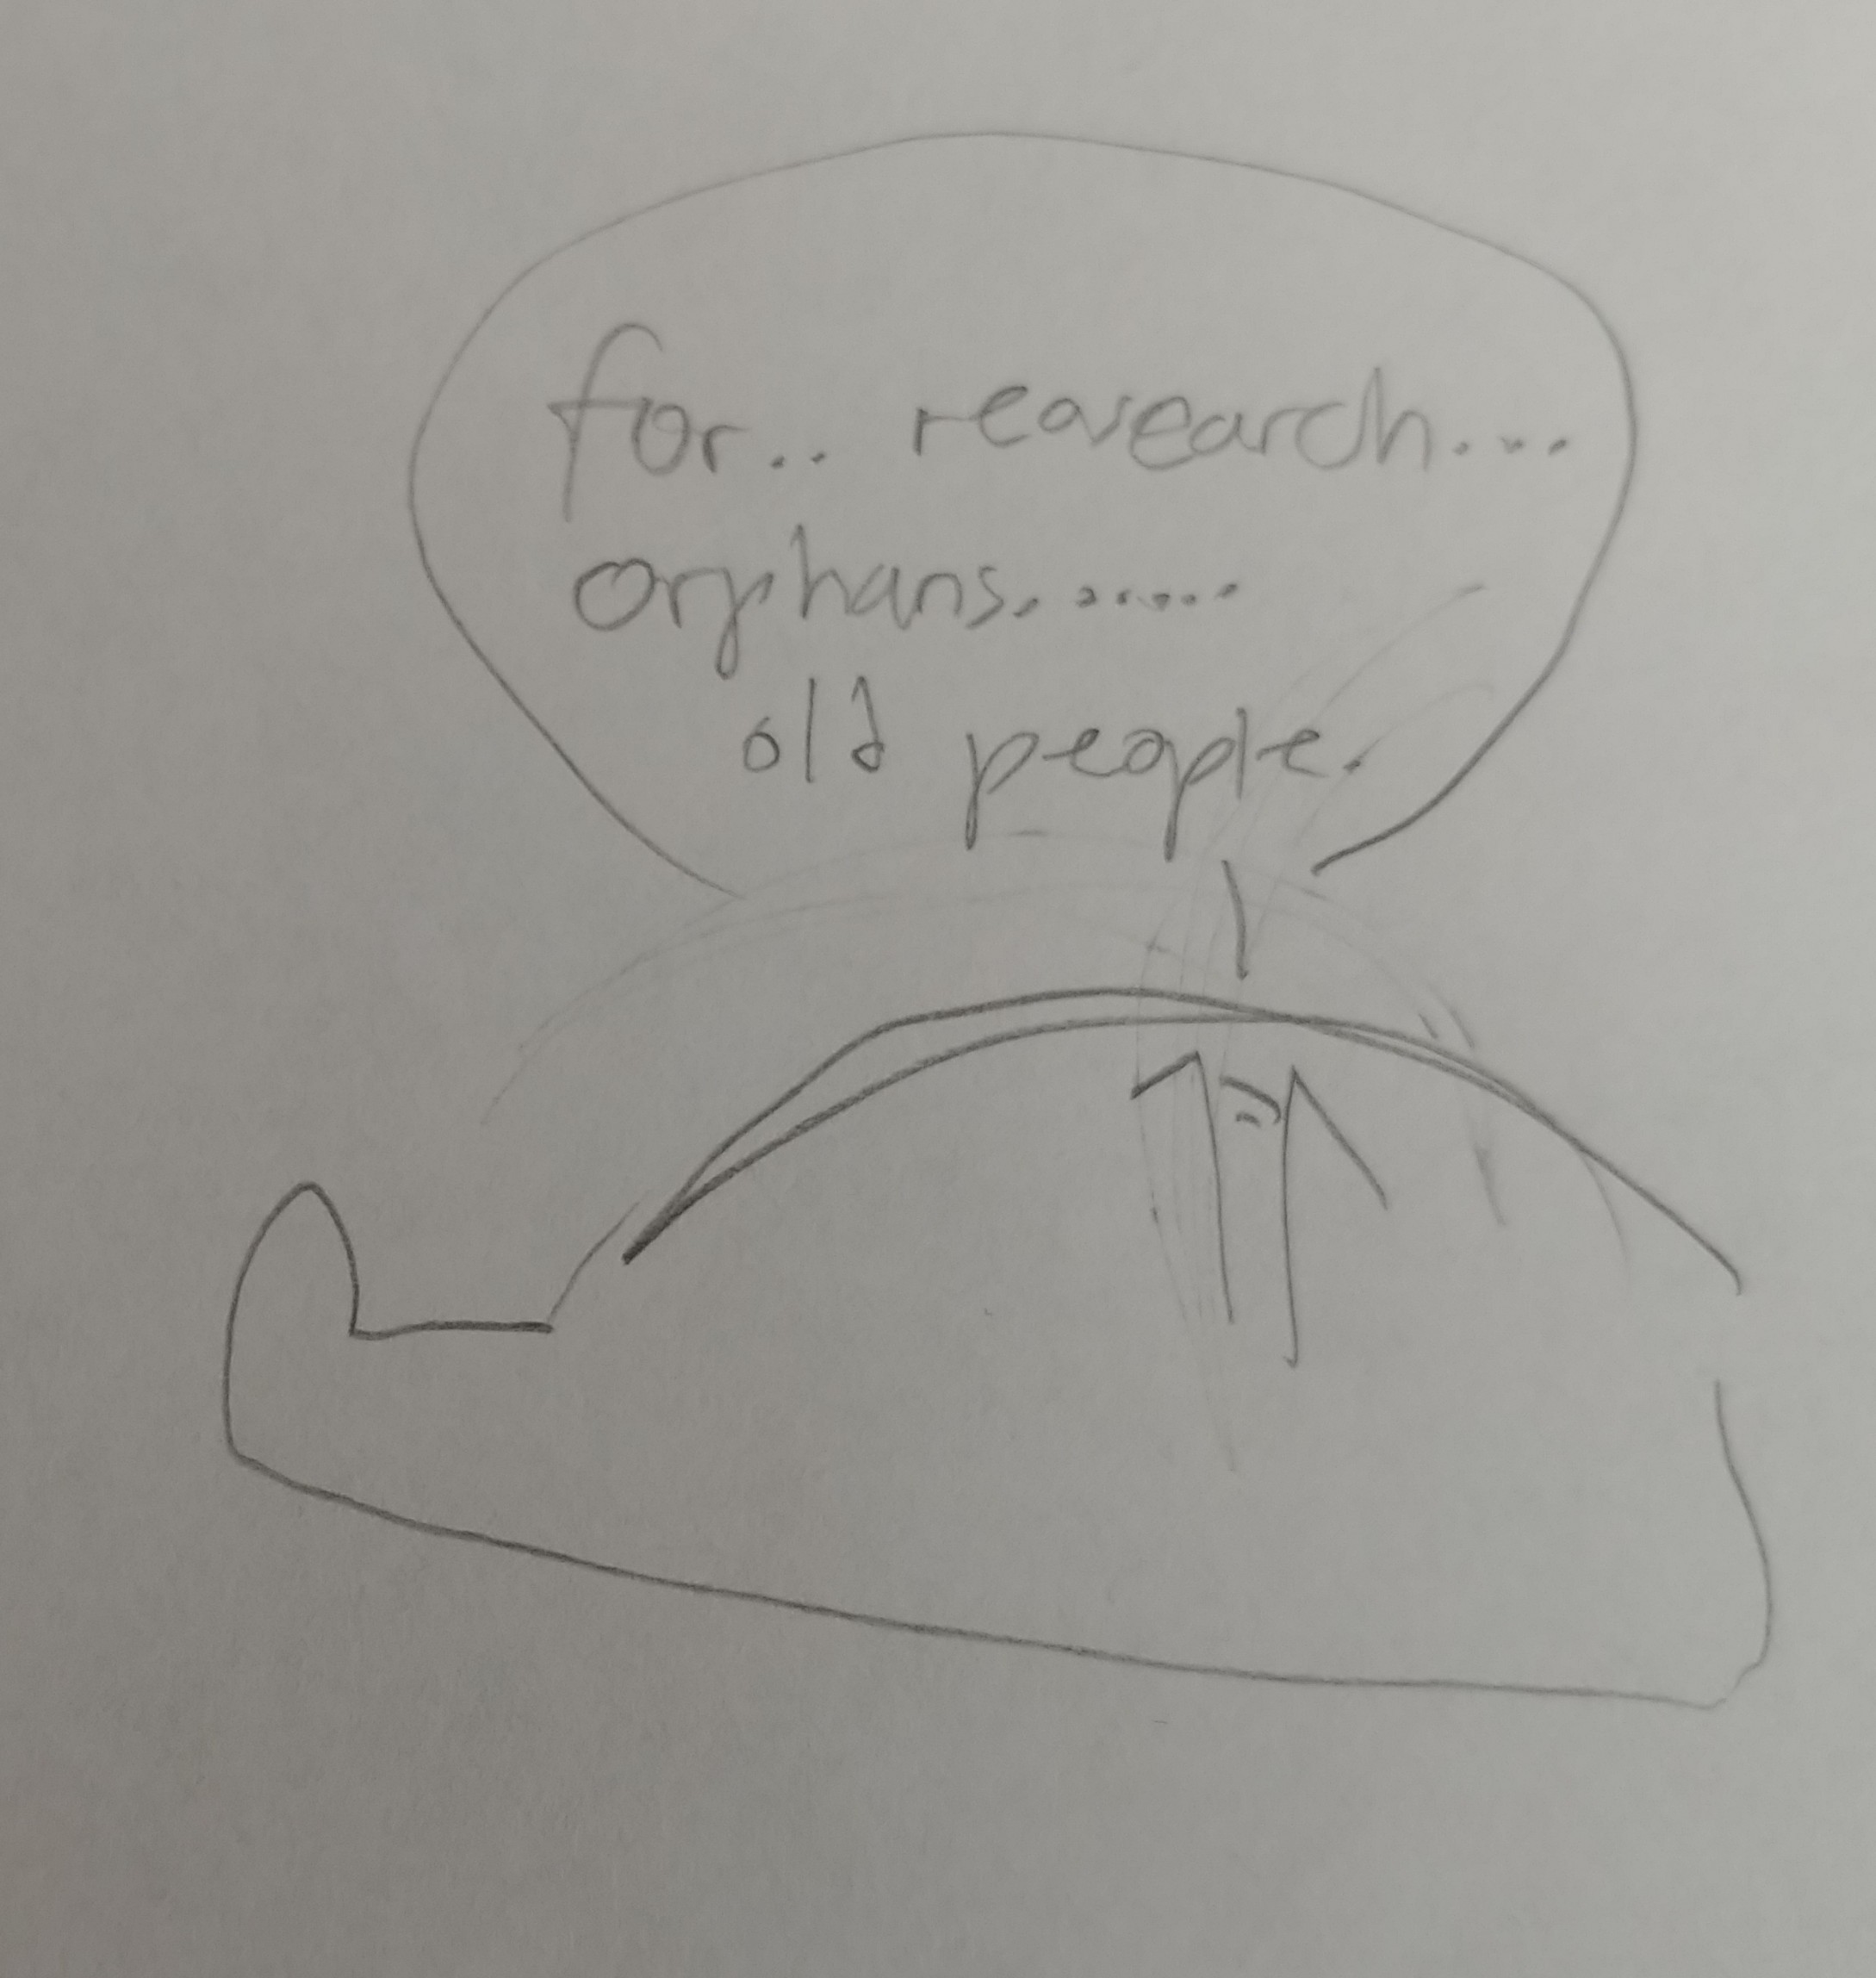 for.. reasearch....
orphans.......
old people.